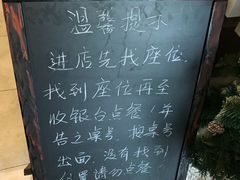 温馨提示
进店先找座位.
找到座位再至
收银台点餐（并
告之桌号，按桌号
出面，没有找到
位置请勿点餐）